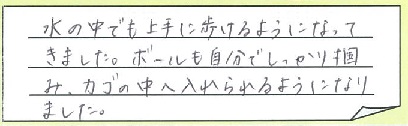 水の中でも上手に歩けるようになって
きました。ボールも自分でしっかり掴
み、カゴの中へ入れられるようになり
ました。